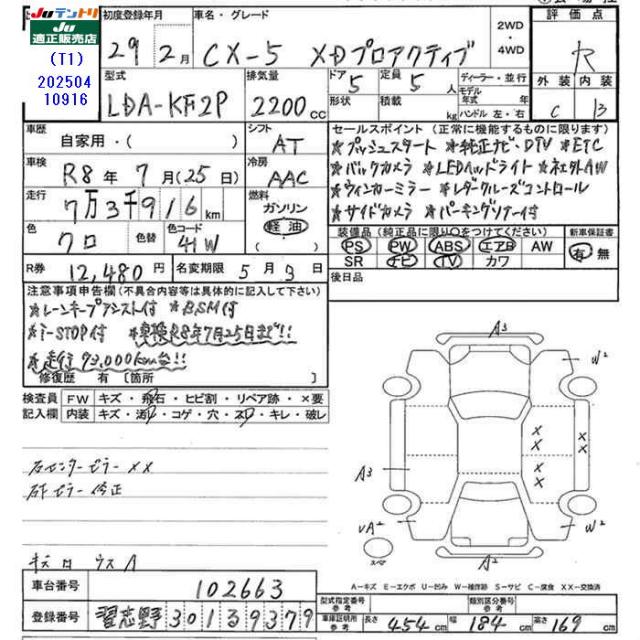 JUテントリ
Ju
適正販売店
(T1)
202504
10916
初度登録年月
29年2月
車名・グレード
CX-5 XDプロアクティブ
2WD
・
4WD
評価点
R
外装 内装
C B
型式
LDA-KF2P
排気量
2200cc
ドア 5
定員 5人
形状
積載 kg
ディーラー・並行
モデル年式 年
ハンドル 左・右
車歴
自家用・( )
シフト
AT
車検
R8年7月(25日)
冷房
AAC
走行
7万3千916km
燃料
ガソリン
軽油
( )
色
クロ
色替
色コード
41W
R券 12,480円
名変期限 5月3日
セールスポイント (正常に機能するものに限ります)
*プッシュスタート *純正ナビ・DTV *ETC
*バックカメラ *LEDヘッドライト *純正AW
*ウィンカーミラー *レーダークルーズコントロール
*サイドカメラ *パーキングソナー付
装備品 (純正品に限り○をつけてください)
PS PW ABS エアB AW
SR ナビ TV カワ
新車保証書
有・無
後日品
注意事項申告欄 (不具合内容等は具体的に記入して下さい)
*レーンキープアシスト付 *BSM付
*i-STOP付 *車検R8年7月25日まで!!
*走行73,000km台!!
修復歴 有 〔箇所
検査員記入欄
FW キズ・飛石・ヒビ割・リペア跡・×要
内装 キズ・汚レ・コゲ・穴・スレ・キレ・破レ
右センターピラーXX
右Fピラー修正
キズ ロ ウス A
車台番号 102663
登録番号 習志野 301 3 9379
A3
W2
A3
VA2
W2
A2
X
X
X
X
スペア
A-キズ E-エクボ U-凹み W-補修跡 S-サビ C-腐食 XX-交換済
型式指定番号 参考
類別区分番号 参考
車庫証明用 参考
長さ 454cm
幅 184cm
高さ 169cm